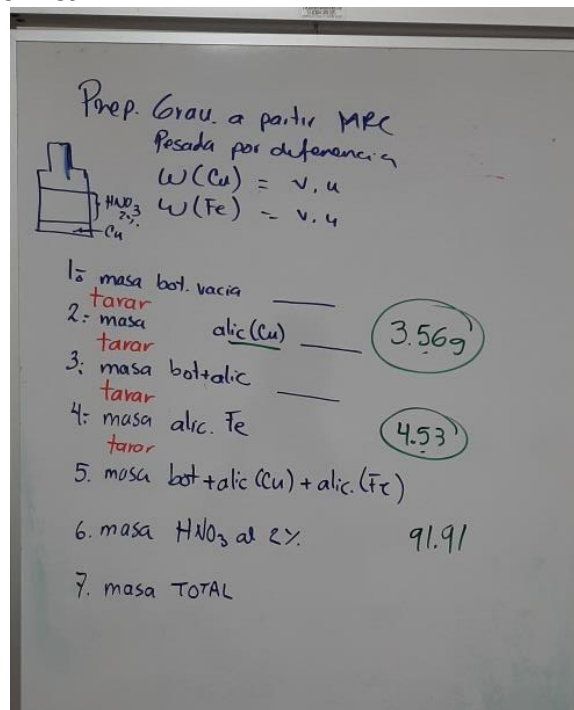 Prep. Grav. a partir MRC
Pesada por diferencia
W(Cu) = v, u
W(Fe) = v, u
HNO3
2%.
Cu
1: masa bot. vacia ____
tarar
2: masa alic(Cu) ____ 3.56g
tarar
3: masa bot+alic ____
tarar
4: masa alic. Fe 4.53
tarar
5. masa bot+alic(Cu)+alic.(Fe)
6. masa HNO3 al 2%. 91.91
7. masa TOTAL